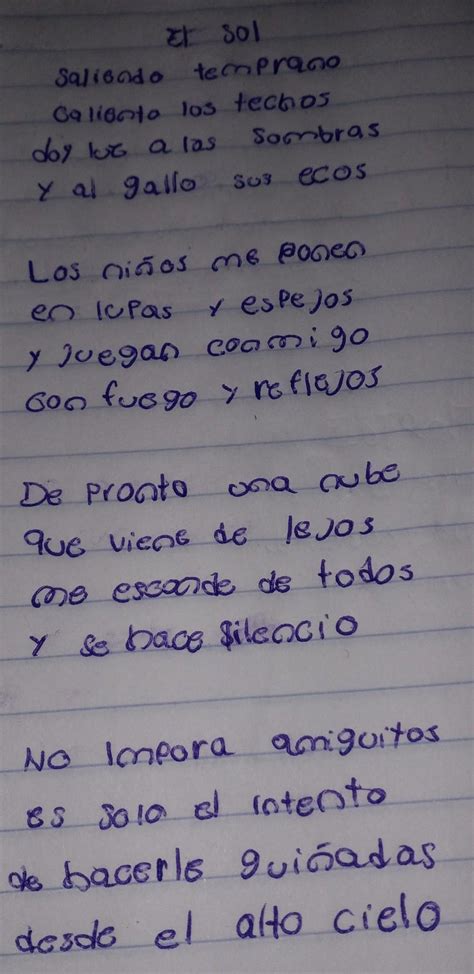 El sol
Saliendo temprano
Caliento los techos
doy luz a las sombras
y al gallo sus ecos
Los niños me ponen
en lupas y espejos
y juegan conmigo
con fuego y reflejos
De pronto una nube
que viene de lejos
me esconde de todos
y se hace silencio
No Impora amiguitos
es solo el intento
de hacerle guiñadas
desde el alto cielo